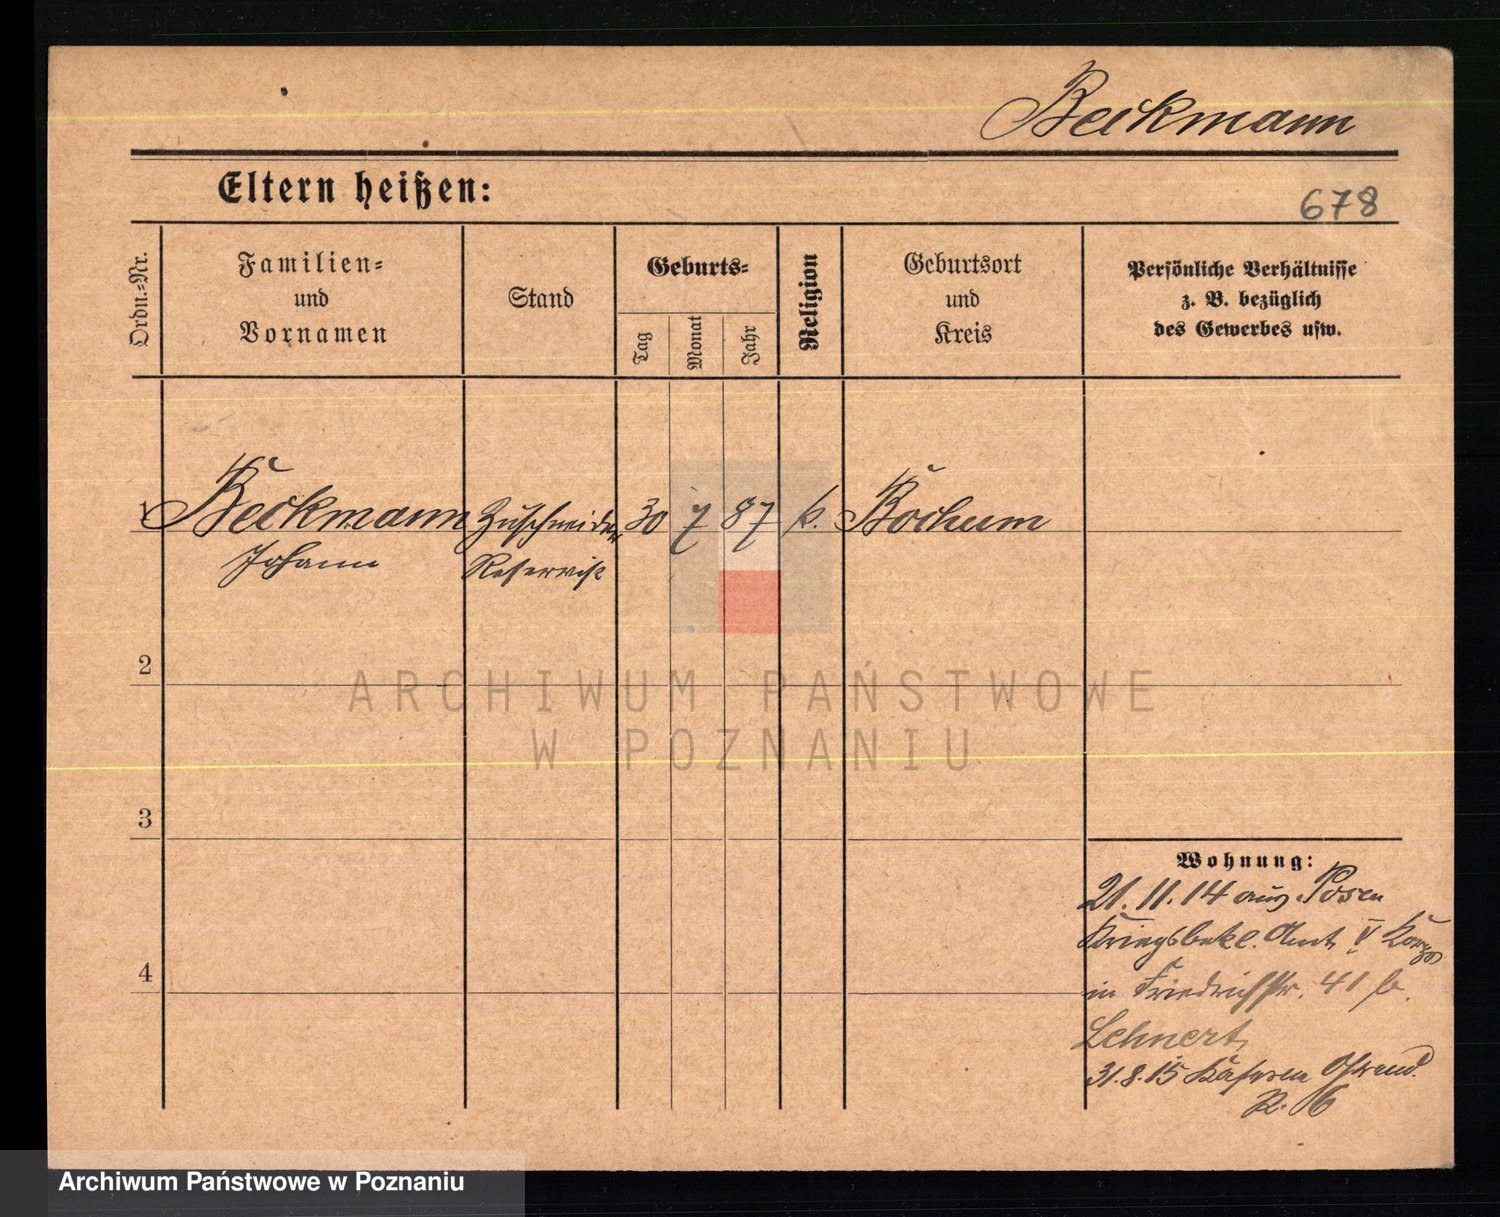 Beckmann
Eltern heißen:
678
Ordn.-Nr.
Familien-
und
Vornamen
Stand
Geburts-
Tag
Monat
Jahr
Religion
Geburtsort
und
Kreis
Persönliche Verhältnisse
z. B. bezüglich
des Gewerbes usw.
1 Beckmann Zuschneider 30 7 87 k. Bochum
Johann Reservist
2
ARCHIWUM PAŃSTWOWE
W POZNANIU
3
Wohnung:
21.11.14 aus Posen
Kriegsbekl. Amt V Korps
4
in Friedrichstr. 41 b.
Lehnert
31.8.15
R. 6
Archiwum Państwowe w Poznaniu